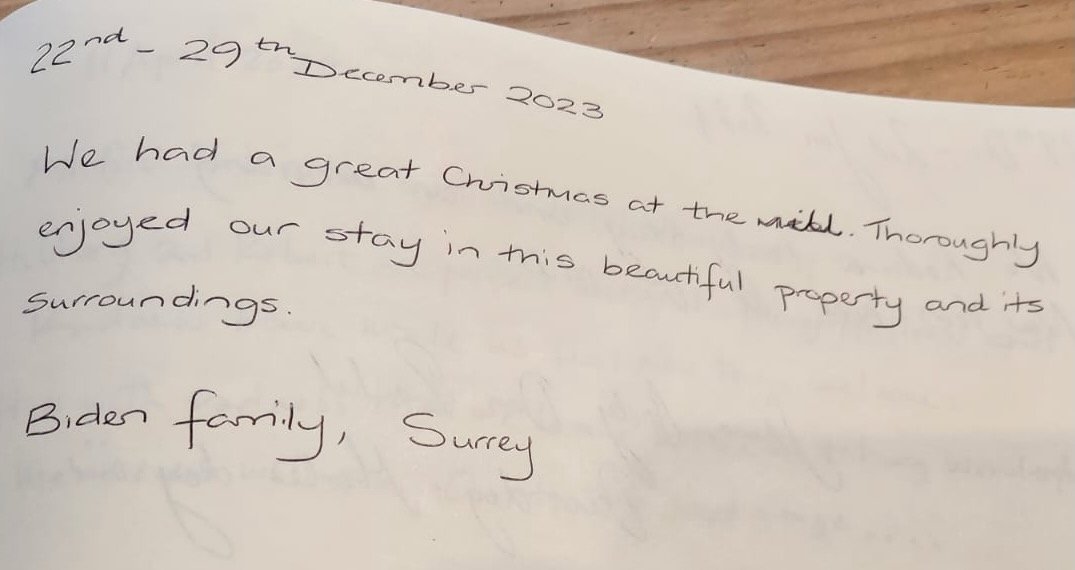 22nd - 29th December 2023
We had a great Christmas at the mill. Thoroughly
enjoyed our stay in this beautiful property and its
surroundings.
Biden family, Surrey